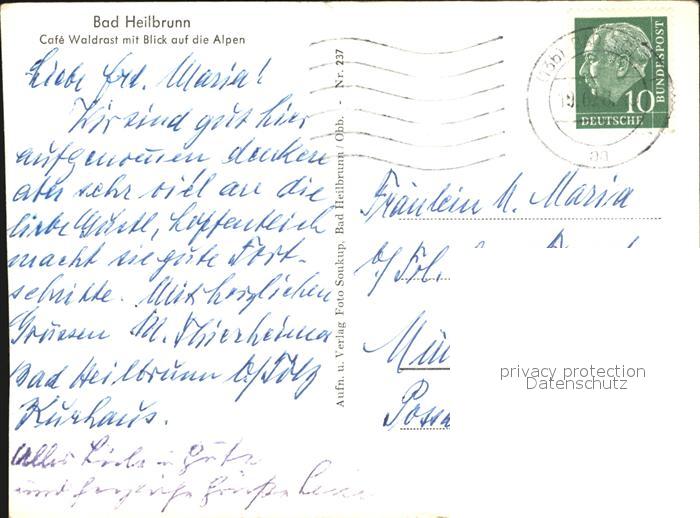 Bad Heilbrunn
Café Waldrast mit Blick auf die Alpen
Liebe frd. Maria!
Wir sind gut hier
aufgenomen denken
aber sehr viel an die
liebe Gustl, hoffentlich
macht sie gute Fort-
schritte. Mit herzlichen
Grüssen M. Thierheimer
Bad Heilbrunn b/Tölz
Kurhaus.
Alles Liebe u. Gute
und herzliche Grüße
Aufn. u. Verlag Foto Soukup, Bad Heilbrunn/Obb. - Nr. 237
10
DEUTSCHE
BUNDESPOST
Fräulein M. Maria
b/ Frl.
Mün
Possa
privacy protection
Datenschutz